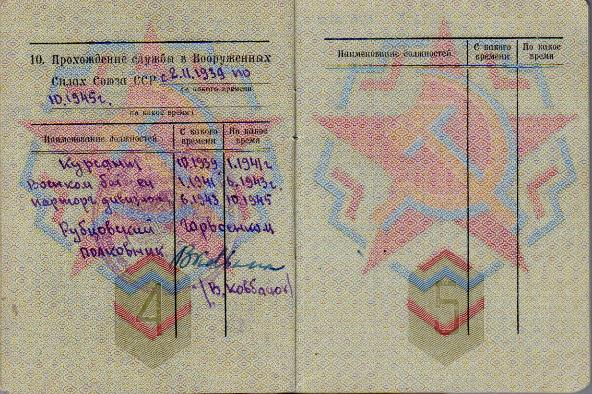 10. Прохождение службы в Вооруженных
Силах Союза ССР с 2.11.1939 по
(с какого времени
10.1945г.
по какое время)
Наименование должностей С какого времени По какое время
Курсант 10.1939 1.1941г
Военком 1.1941 6.1943г.
парторг дивизиона 6.1943 10.1945
Рубцовский Горвоенком
полковник
4
Наименование должностей С какого времени По какое время
5